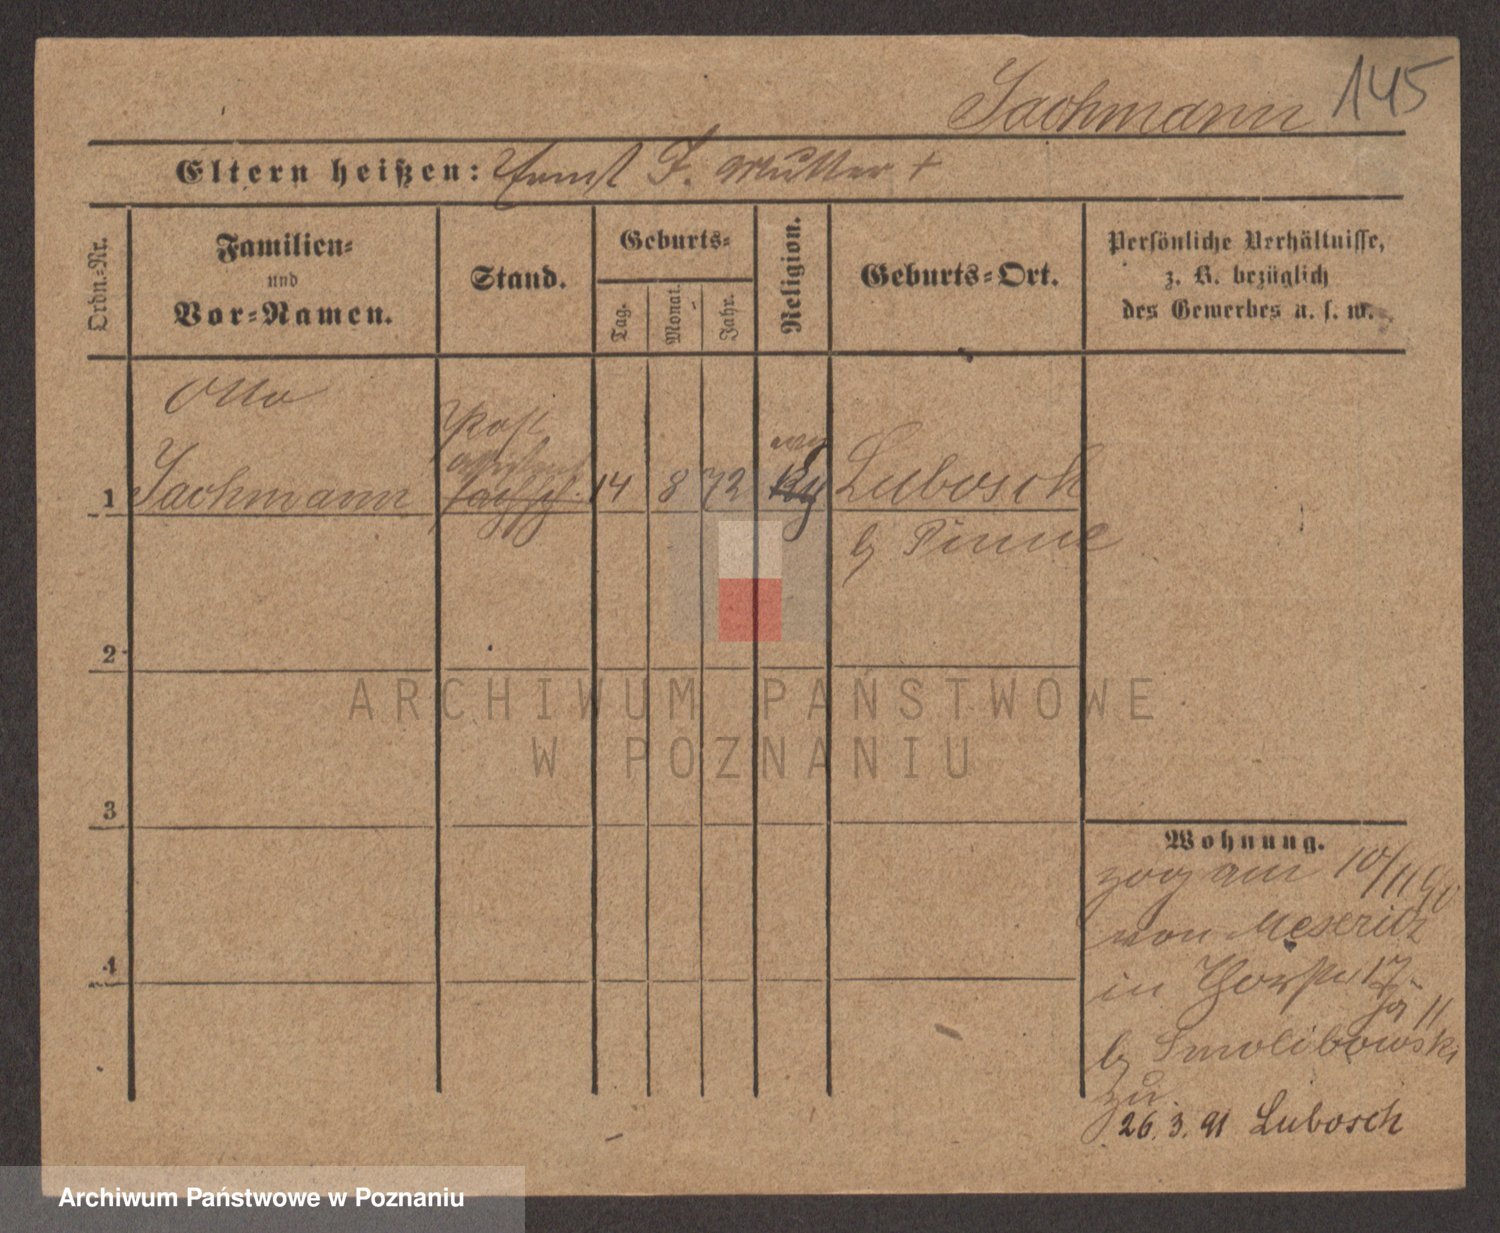 Jachmann 145
Eltern heißen: Ernst F. Mutter +
Ordn.-Nr.
Familien-
und
Vor-Namen.
Stand.
Geburts-
Tag.
Monat.
Jahr.
Religion.
Geburts-Ort.
Persönliche Verhältnisse,
z. B. bezüglich
des Gewerbes u. s. w.
Otto
Post
assistent
1 Jachmann 14 8 72 Lubosch
b Pinne
2
ARCHIWUM PAŃSTWOWE
W POZNANIU
3
Wohnung.
zog am 10/11 90
von Meseritz
4
in 17
11
b Smolibowski
zu
26. 3. 91 Lubosch
Archiwum Państwowe w Poznaniu